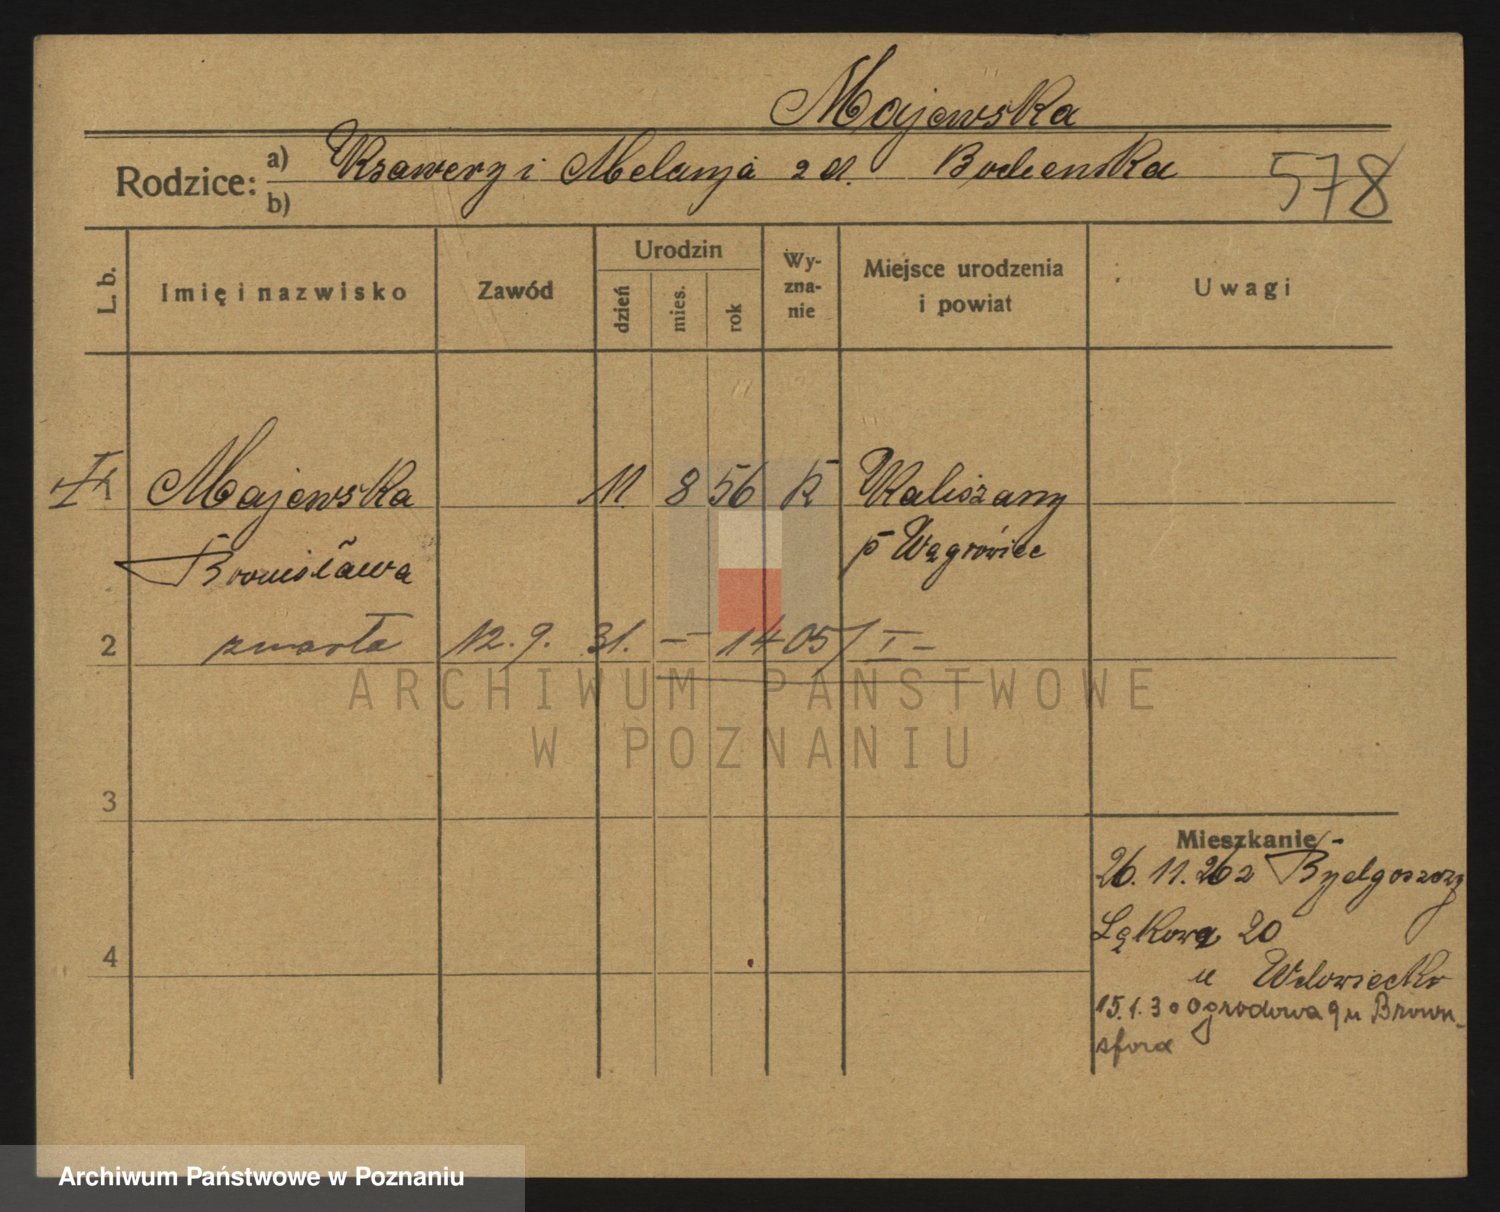 Majewska
Rodzice: a) Ksawery i Melanja z d. Bodenska 578
b)
L. b. Imię i nazwisko Zawód Urodzin dzień mies. rok Wy-zna-nie Miejsce urodzenia i powiat Uwagi
1 Majewska 11. 8 56 k Kaliszany
Bronisława p Wągrówiec
2 zmarła 12. 9. 31. – 1405/I –
ARCHIWUM PAŃSTWOWE
W POZNANIU
3
Mieszkanie
26. 11. 26 z Bydgoszczy
4 Łąkowa 20
u
15. 1. 30 Ogrodowa 9 u Brown-
sforda
Archiwum Państwowe w Poznaniu